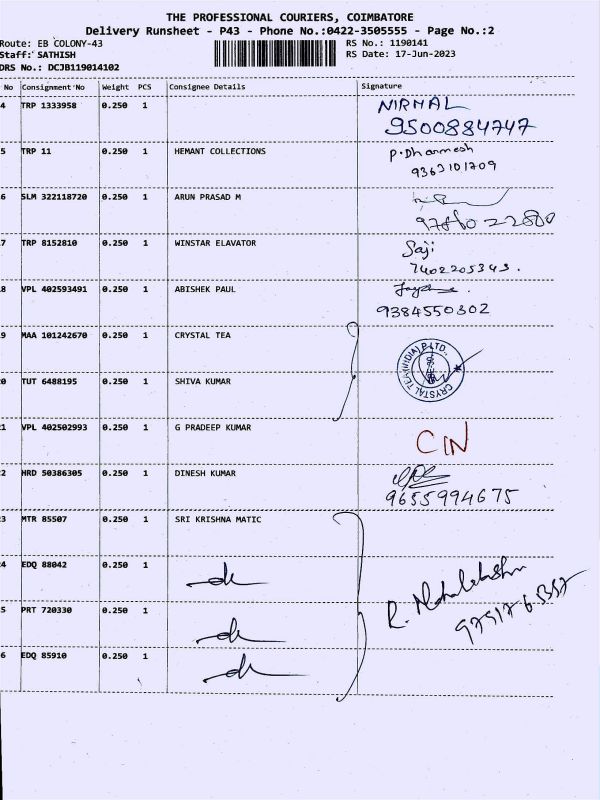 THE PROFESSIONAL COURIERS, COIMBATORE
Delivery Runsheet - P43 - Phone No.:0422-3505555 - Page No.:2
Route: EB COLONY-43 RS No.: 1190141
Staff: SATHISH RS Date: 17-Jun-2023
DRS No.: DCJB119014102
No Consignment No Weight PCS Consignee Details Signature
4 TRP 1333958 0.250 1 NIRMAL
9500884747
5 TRP 11 0.250 1 HEMANT COLLECTIONS P.Dharmesh
9363101709
6 SLM 322118720 0.250 1 ARUN PRASAD M
7 TRP 8152810 0.250 1 WINSTAR ELAVATOR Saji
7402205343.
8 VPL 402593491 0.250 1 ABISHEK PAUL
9384550302
9 MAA 101242670 0.250 1 CRYSTAL TEA
CRYSTAL TEA (INDIA) P LTD.
0 TUT 6488195 0.250 1 SHIVA KUMAR
1 VPL 402502993 0.250 1 G PRADEEP KUMAR CIN
2 HRD 50386305 0.250 1 DINESH KUMAR
9655994675
3 MTR 85507 0.250 1 SRI KRISHNA MATIC
4 EDQ 88042 0.250 1
R. Mahalakshmi
5 PRT 720330 0.250 1
6 EDQ 85910 0.250 1